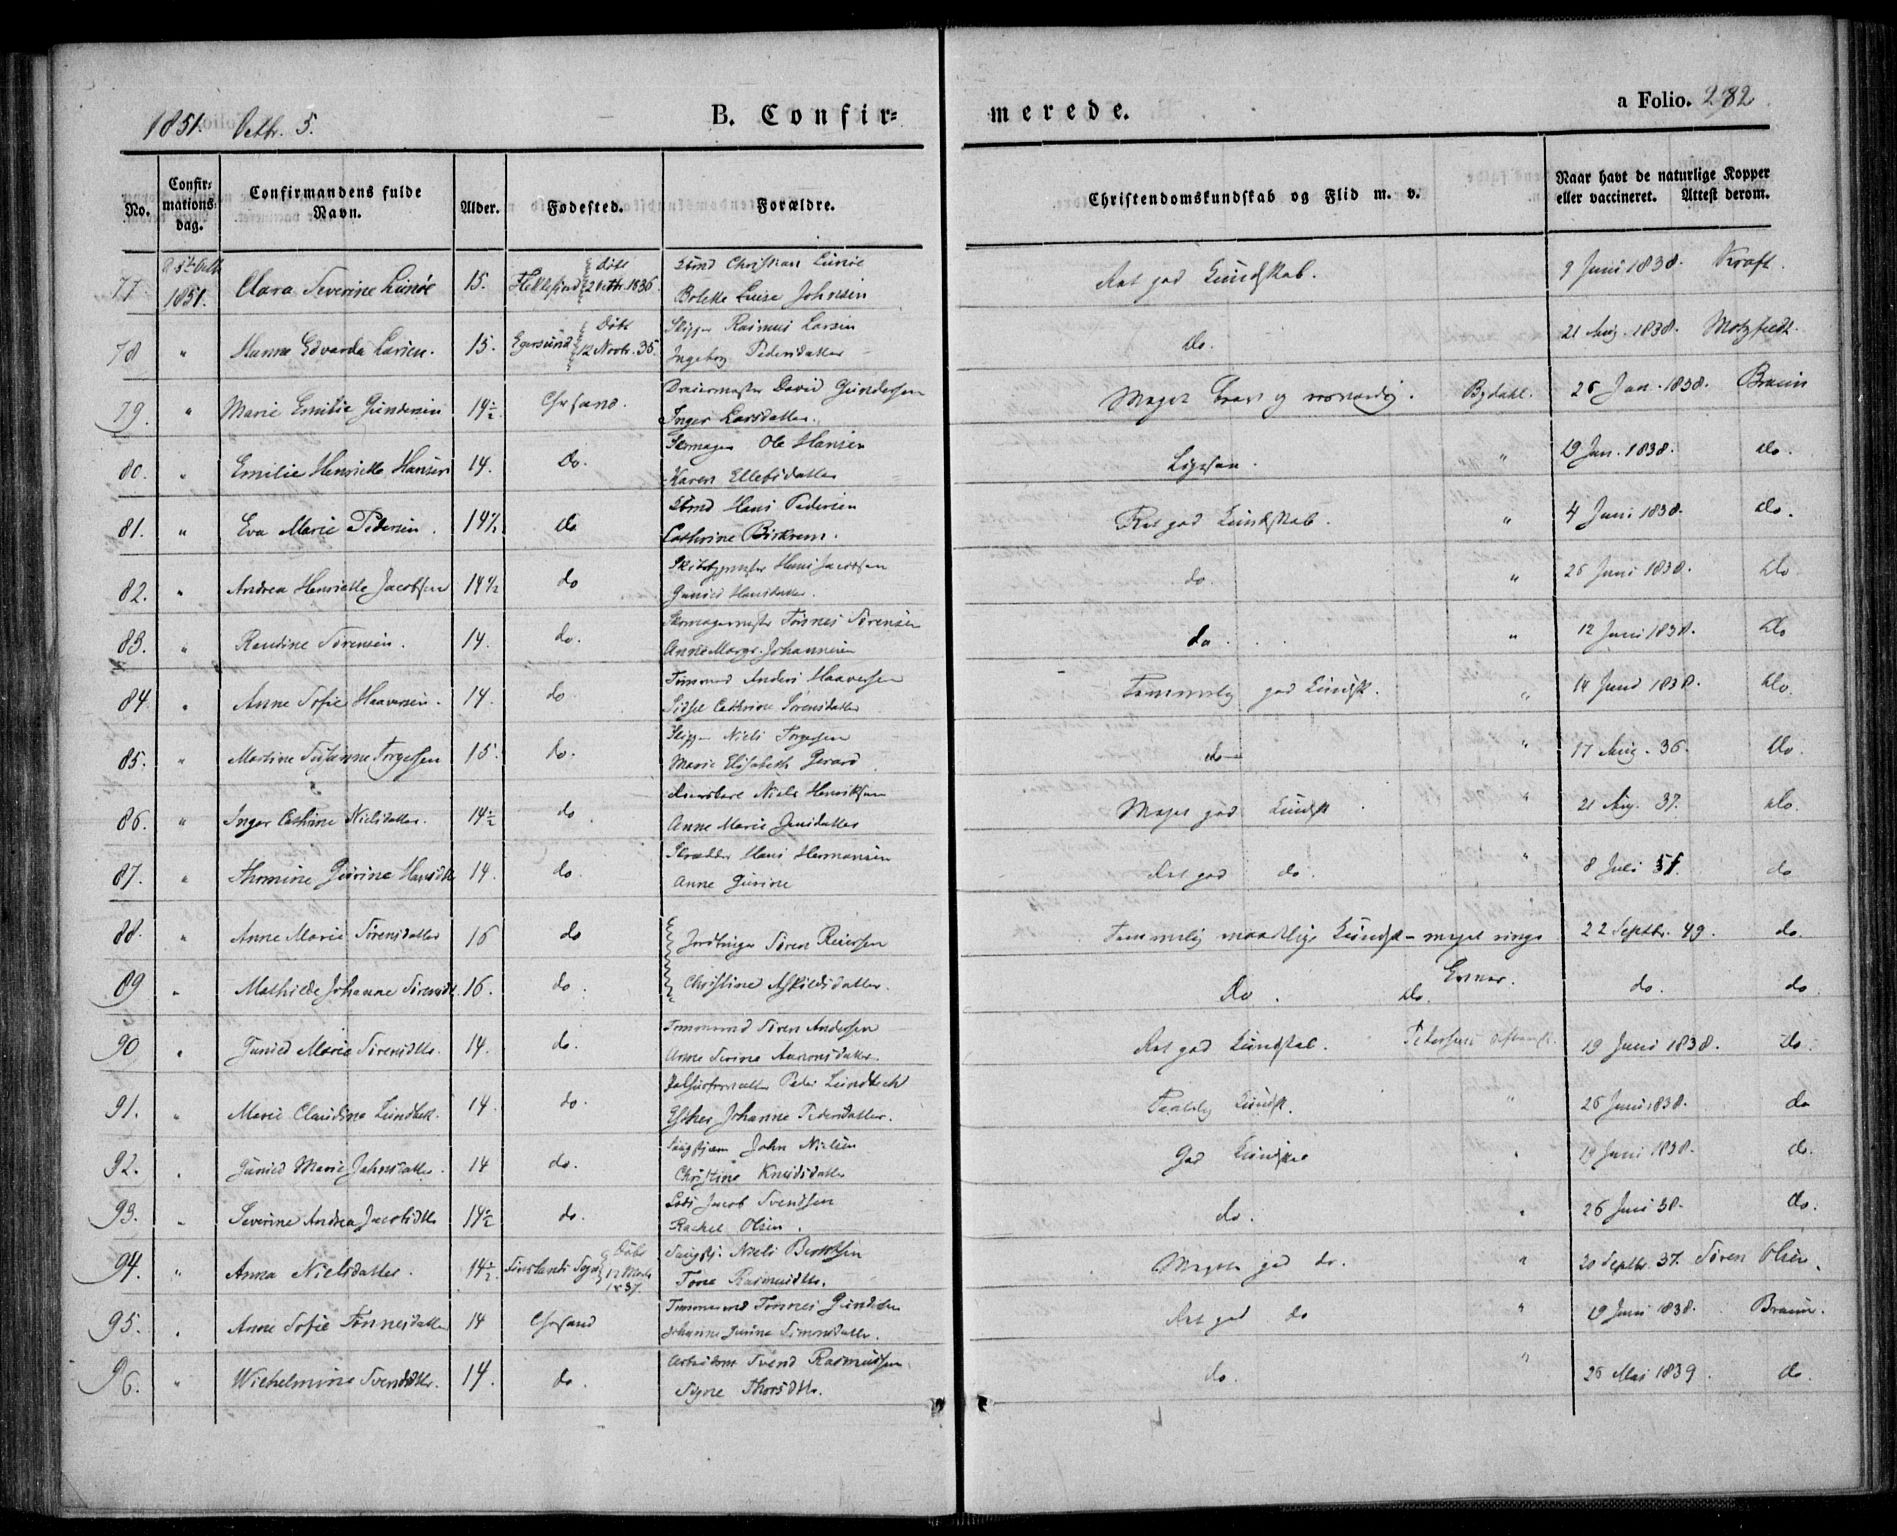 1851. Octbr. 5.
B. Confirmerede.
a Folio. 282
No.
Confirmationsdag.
Confirmandens fulde Navn.
Alder.
Fødested.
Forældre.
Christendomskundskab og Flid m. v.
Naar havt de naturlige Kopper eller vaccineret. Attest derom.
77. 1851. Clara Severine 15. Døbt 2 Octbr. 1836 Christian Ret god Kundskab. 9 Juni 1838. Kraft.
Bolette Luise Johnsen
78 " Hanne Edvarda Larsen. 15. Egersund Døbt 12 Novbr. 35. Skipper Rasmus Larsen do. 21 Aug. 1838. Motzfeldt.
Ingeborg Pedersdatter
79. " Marie Emilie Gundersen 14½. Chrsand. Dreiermester David Gundersen Meget brav og Bydahl. 26 Jan. 1838. Braun
Inger Larsdatter.
80. " Emilie Henriette Hansen 14. do. Skomager Ole Hansen Ligesaa. " 19 Jun. 1838. do.
Karen Ellefsdatter
81. " Eva Marie Pedersen. 14½. do Hans Pedersen Ret god Kundskab. " 4 Juni 1838. do.
Cathrine Birkrem.
82. " Andrea Henriette Jacobsen 14½ do Hans Jacobsen do " 26 Juni 1838. do.
Gunild Hansdatter.
83. " Randine Sørensen. 14. do. Skomagermester Tønnes Sørensen do. " 12 Juni 1838. do
Anne Margr. Johannesen
84. " Anne Sofie Haaversen. 14. do Tømmermd Anders Haaversen Temmelig god Kundsk. " 14 Juni 1838. do.
Sidsel Cathrine Sørensdatter
85. " Martine Susanne Torgersen 15. do. Skipper Niels Torgersen do " 17 Aug. 36. do.
Marie Elisabeth Gerard
86. " Inger Cathrine Nielsdatter. 14½ do. Niels Henriksen Meget god Kundsk " 21 Aug. 37. do.
Anne Marie Jensdatter
87. " Thomine Gurine Hansdtr 14. do. Skrædder Hans Hermansen Ret god do. " 8 Juli 51. do
Anne Gurine
88. " Anne Marie Sørensdatter 16 do Søren Reiersen Temmelig maadelige Kundsk - meget ringe 22 Septbr. 49. do.
89 " Mathilde Johanne Sørensdt. 16. do. Christine Askildsdatter. do. do. Evner. do. do.
90 " Gunild Marie Sørensdtr. 14. do. Tømmermd Søren Andersen Ret god Kundskab. 19 Juni 1838. do.
Anne Serine Aanonsdatter.
91. " Marie Claudine Lundbek. 14. do. Peder Lundbeck Kundsk. " 26 Juni 1838. do
Esther Johanne Pedersdatter.
92. " Gunild Marie Johnsdatter. 14 do. John Nielsen God Kundskab " 19 Juni 1838. do.
Christine Knudsdatter
93. " Severine Andrea Jacobsdtr 14½ do. Lods Jacob Svendsen do. " 26 Juni 38. do.
Rachel Olsen.
94. " Anna Nielsdatter. 14½. Døbt 1837. Niels Berntsen Meget god do. " 20 Septbr. 37. Søren Olsen.
Tone Rasmusdtr.
95. " Anne Sofie Tønnesdatter 14 Chrsand Tømmermd Tønnes Gundersen Ret god do " 19 Juni 1838. Braun.
Johanne Gurine Simonsdatter.
96. " Wilhelmine Svendsdtr. 14. do. Svend Rasmussen. do. " 26 Mai 1839. do.
Signe Thorsdtr.